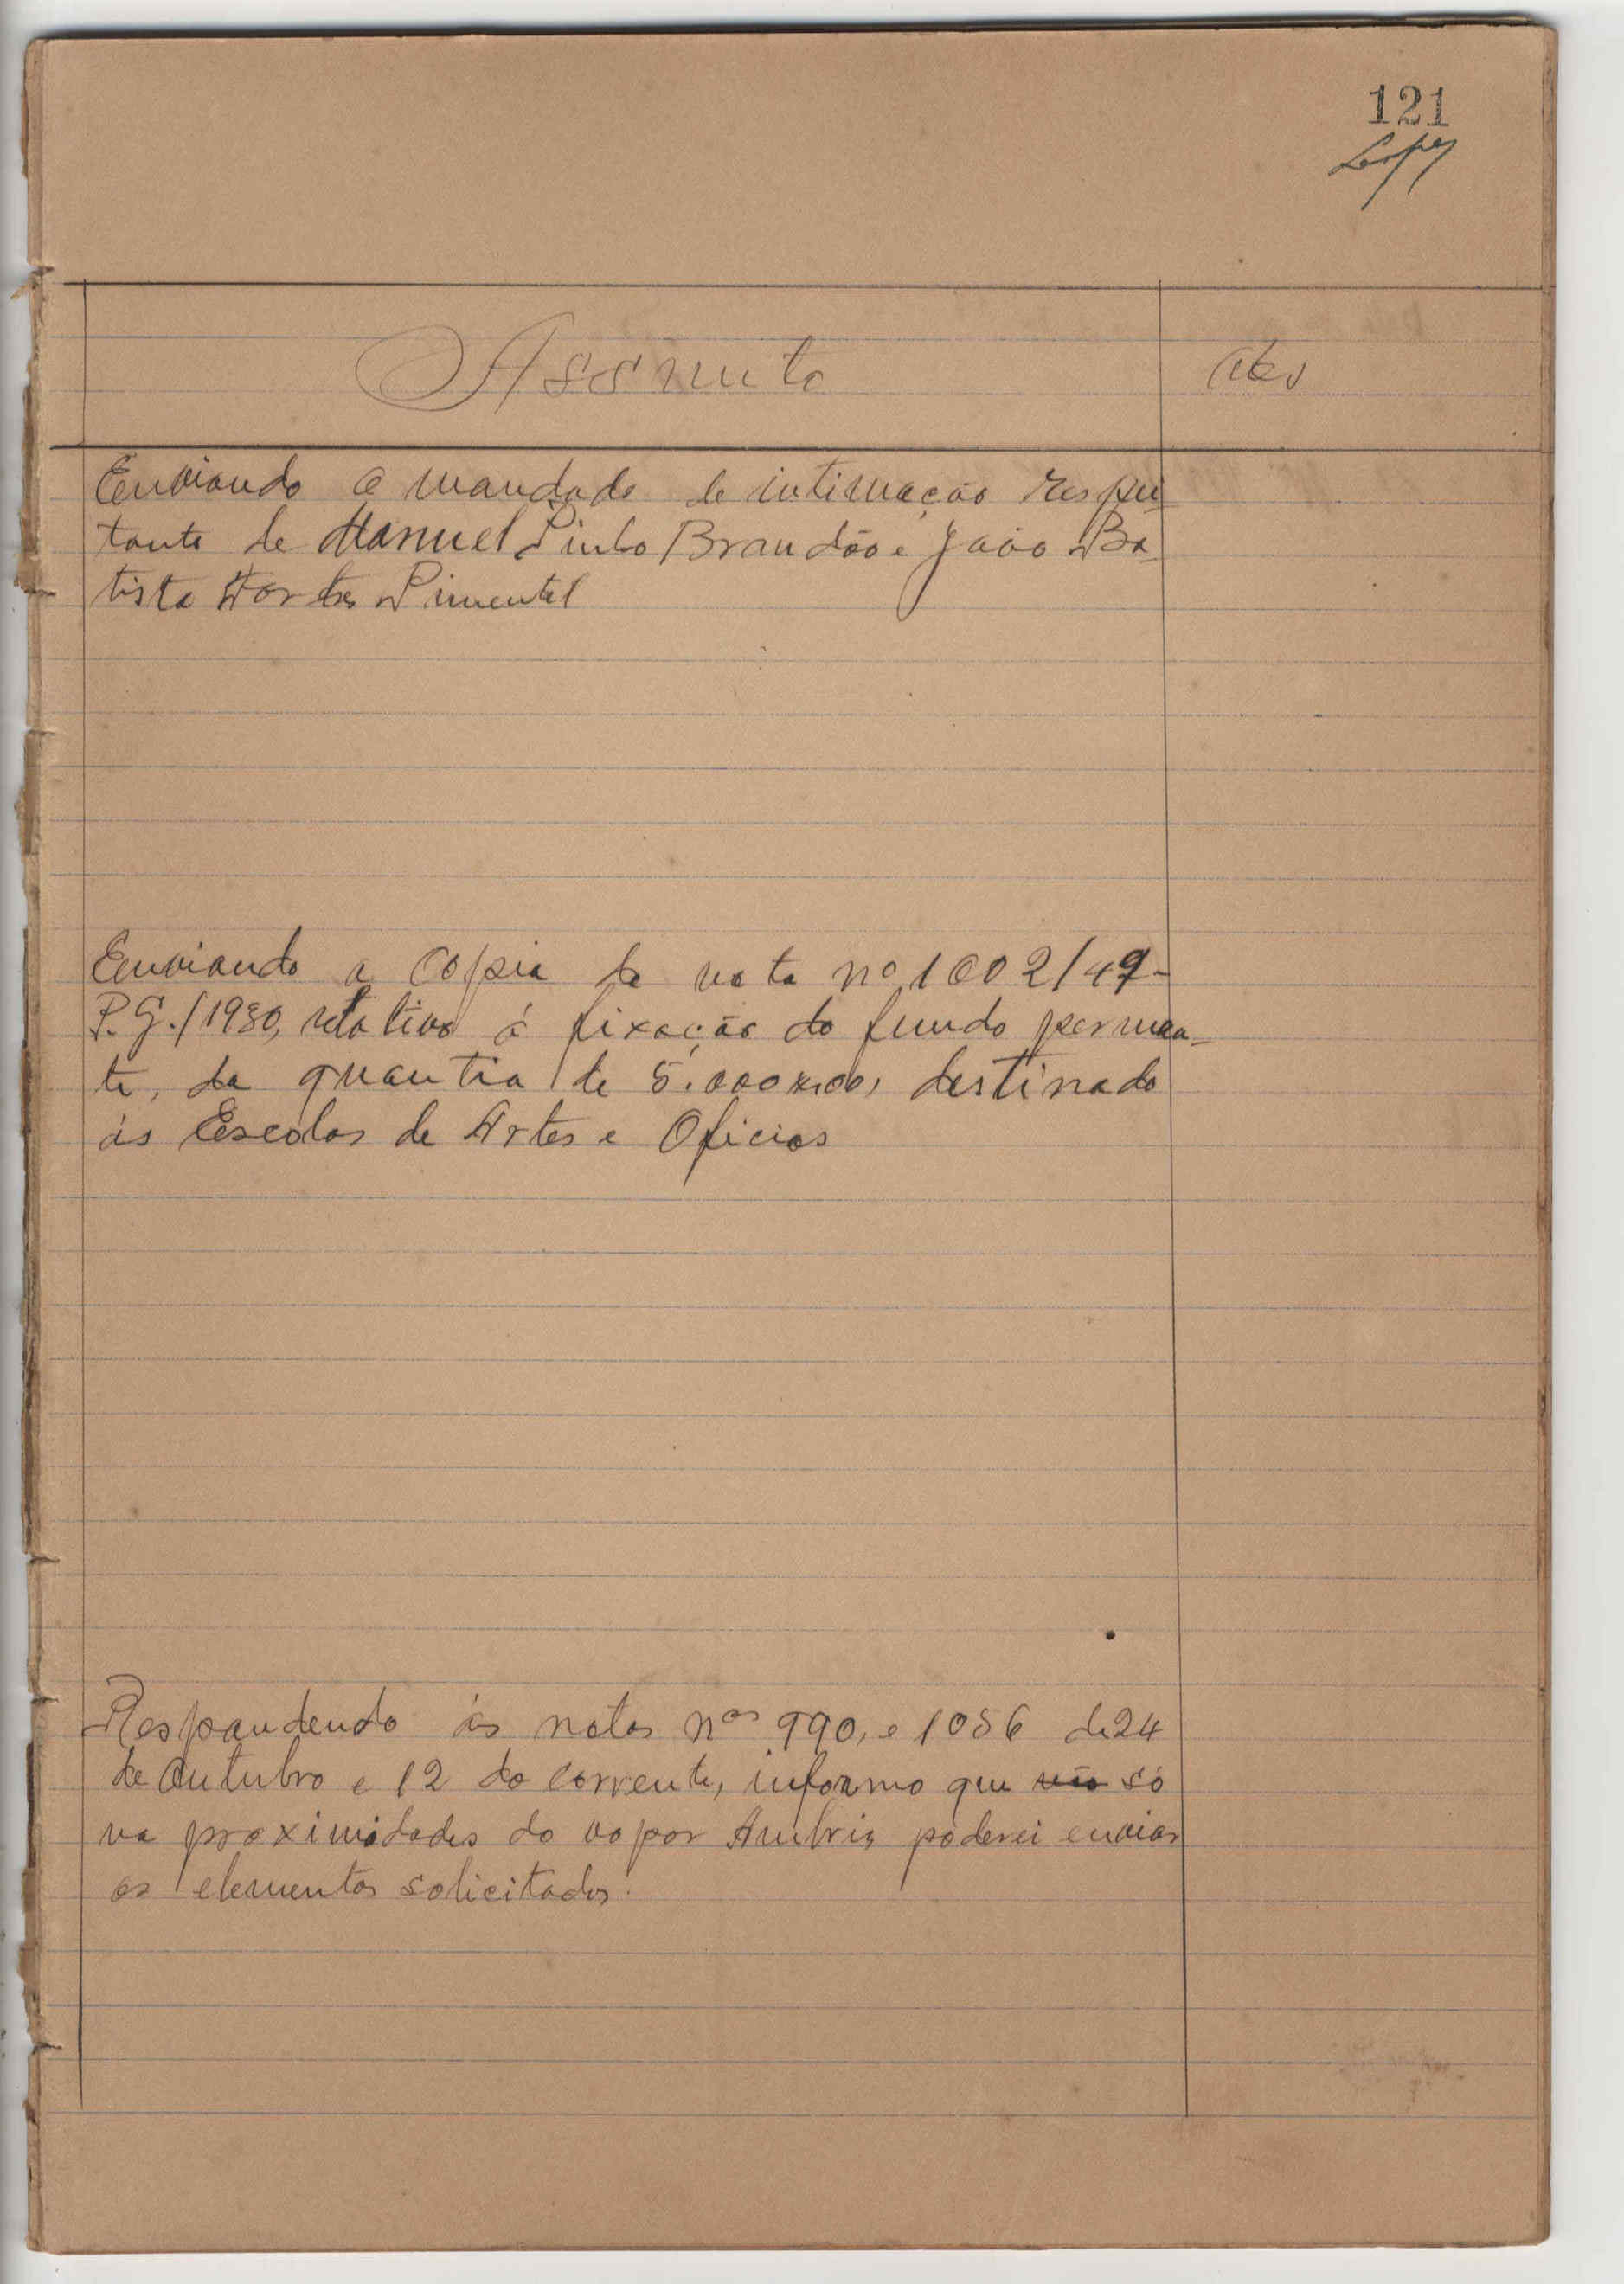 121
Lopes
Assunto
Obs
Enviando o mandado de intimação respei-
tante de Manuel Pinho Brandão e João Ba-
tista Fortes Pimentel
Enviando a Copia da nota nº 1002/49-
P.G./1930, relativa á fixação do fundo perman-
te, da quantia de 5.000x00, destinado
ás Escolas de Artes e Oficios
Respondendo ás notas nos 990, e 1056 de 24
de Outubro e 12 do corrente, informo que não só
na proximidades do vapor Ambriz poderei enviar
os elementos solicitados.